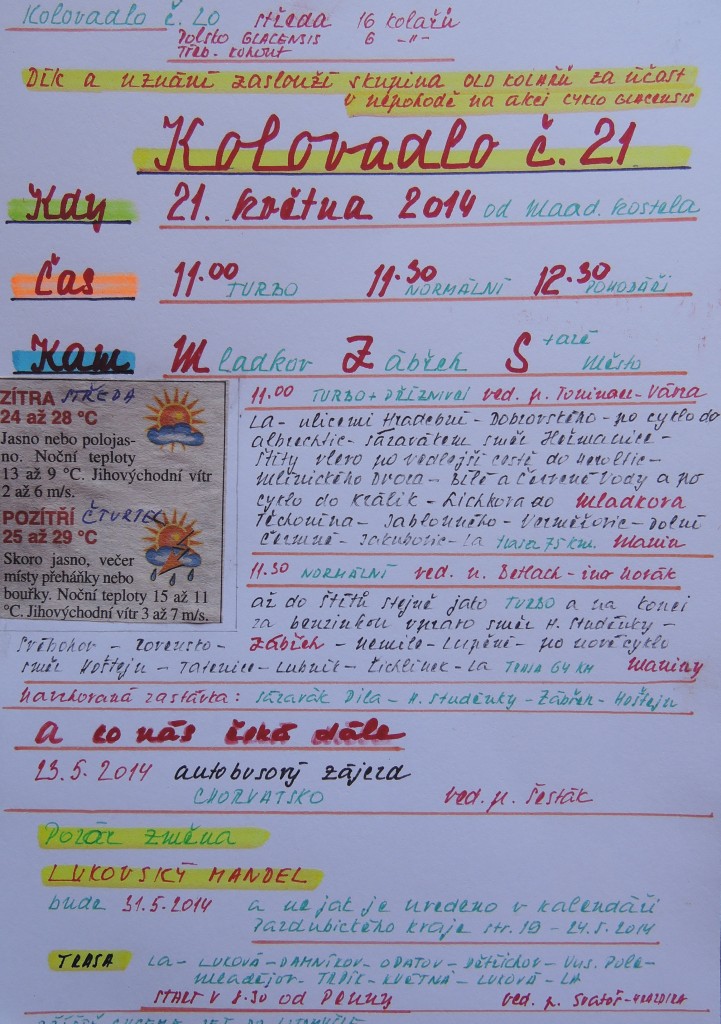 Kolovadlo č. 20 středa 16 kolařů
Polsko GLACENSIS 6 -"-
Třeb. KOHOUT
Dík a uznání zaslouží skupina OLD KOLAŘŮ za účast
v nepohodě na akci CYKLO GLACENSIS
Kolovadlo č. 21
Kdy 21. května 2014 od Maad. kostela
Čas 11.00 TURBO 11.30 NORMÁLNÍ 12.30 POHODÁŘI
Kam Mladkov Zábřeh Staré Město
ZÍTRA STŘEDA
24 až 28 °C
Jasno nebo polojas-
no. Noční teploty
13 až 9 °C. Jihovýchodní vítr
2 až 6 m/s.
POZÍTŘÍ ČTVRTEK
25 až 29 °C
Skoro jasno, večer
místy přeháňky nebo
bouřky. Noční teploty 15 až 11
°C. Jihovýchodní vítr 3 až 7 m/s.
11.00 TURBO + PŘÍZNIVCI ved. p. Tominac - Vána
La - ulicemi Hradební - Dobrovského - po cyklo do
Albrechtic - Sázavátem směr Heřmanice -
Štíty vlevo po vedlejší cestě do Heroltic -
Mlýnického Dvora - Bílé a Červené Vody a po
cyklo do Králík - Lichkova do Mladkova
Těchonína - Jablonného - Verměřovic - Dolní
Čermné - Jakubovic - La trasa 75 km.
11.30 NORMÁLNÍ ved. p. Betlach - ing Novák
až do Štítů stejně jako TURBO a na konci
za benzinkou vpravo směr H. Studénky -
Svébohov - Rovensko - Zábřeh - Nemile - Lupěné - po nové cyklo
směr Hoštejn - Tatenice - Lubník - Žichlínek - La TRASA 64 KM
Navrhovaná zastávka: Sázavák Díla - H. Studénky - Zábřeh - Hoštejn
A co nás čeká dále
23.5. 2014 autobusový zájezd
CHORVATSKO ved. p. Šesták
Pozor změna
LUKOVSKÝ MANDEL
bude 31.5.2014 a ne jak je uvedeno v kalendáři
Pardubického kraje str. 19 - 24.5.2014
TRASA LA - LUKOVÁ - DAMNÍKOV - OPATOV - DĚTŘICHOV - Vys. Pole -
Mladějov - TRPÍK - KVĚTNÁ - LUKOVÁ - LA
START V 8.30 od Penny ved. p. Svatoš -